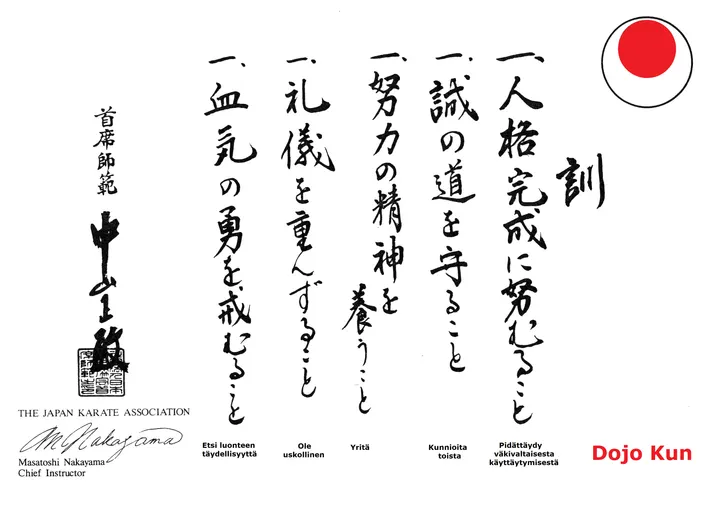 訓
一、人格完成に努むること
一、誠の道を守ること
一、努力の精神を養うこと
一、礼儀を重んずること
一、血気の勇を戒むること
首席師範
中山正敏
THE JAPAN KARATE ASSOCIATION
M. Nakayama
Masatoshi Nakayama
Chief Instructor
Etsi luonteen
täydellisyyttä
Ole
uskollinen
Yritä
Kunnioita
toista
Pidättäydy
väkivaltaisesta
käyttäytymisestä
Dojo Kun